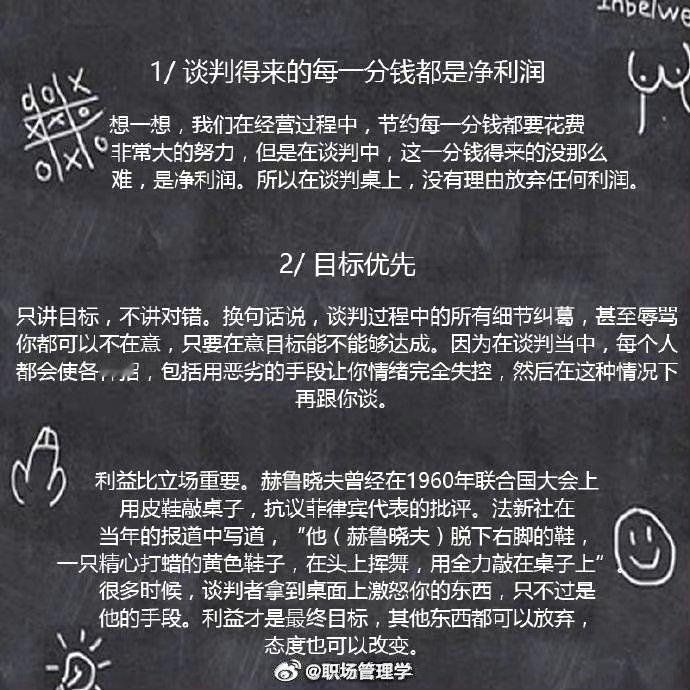 Inbelwe
1/ 谈判得来的每一分钱都是净利润
想一想，我们在经营过程中，节约每一分钱都要花费
非常大的努力，但是在谈判中，这一分钱得来的没那么
难，是净利润。所以在谈判桌上，没有理由放弃任何利润。
2/ 目标优先
只讲目标，不讲对错。换句话说，谈判过程中的所有细节纠葛，甚至辱骂
你都可以不在意，只要在意目标能不能够达成。因为在谈判当中，每个人
都会使各 ，包括用恶劣的手段让你情绪完全失控，然后在这种情况下
再跟你谈。
利益比立场重要。赫鲁晓夫曾经在1960年联合国大会上
用皮鞋敲桌子，抗议菲律宾代表的批评。法新社在
当年的报道中写道，“他（赫鲁晓夫）脱下右脚的鞋，
一只精心打蜡的黄色鞋子，在头上挥舞，用全力敲在桌子上”。
很多时候，谈判者拿到桌面上激怒你的东西，只不过是
他的手段。利益才是最终目标，其他东西都可以放弃，
态度也可以改变。
@职场管理学